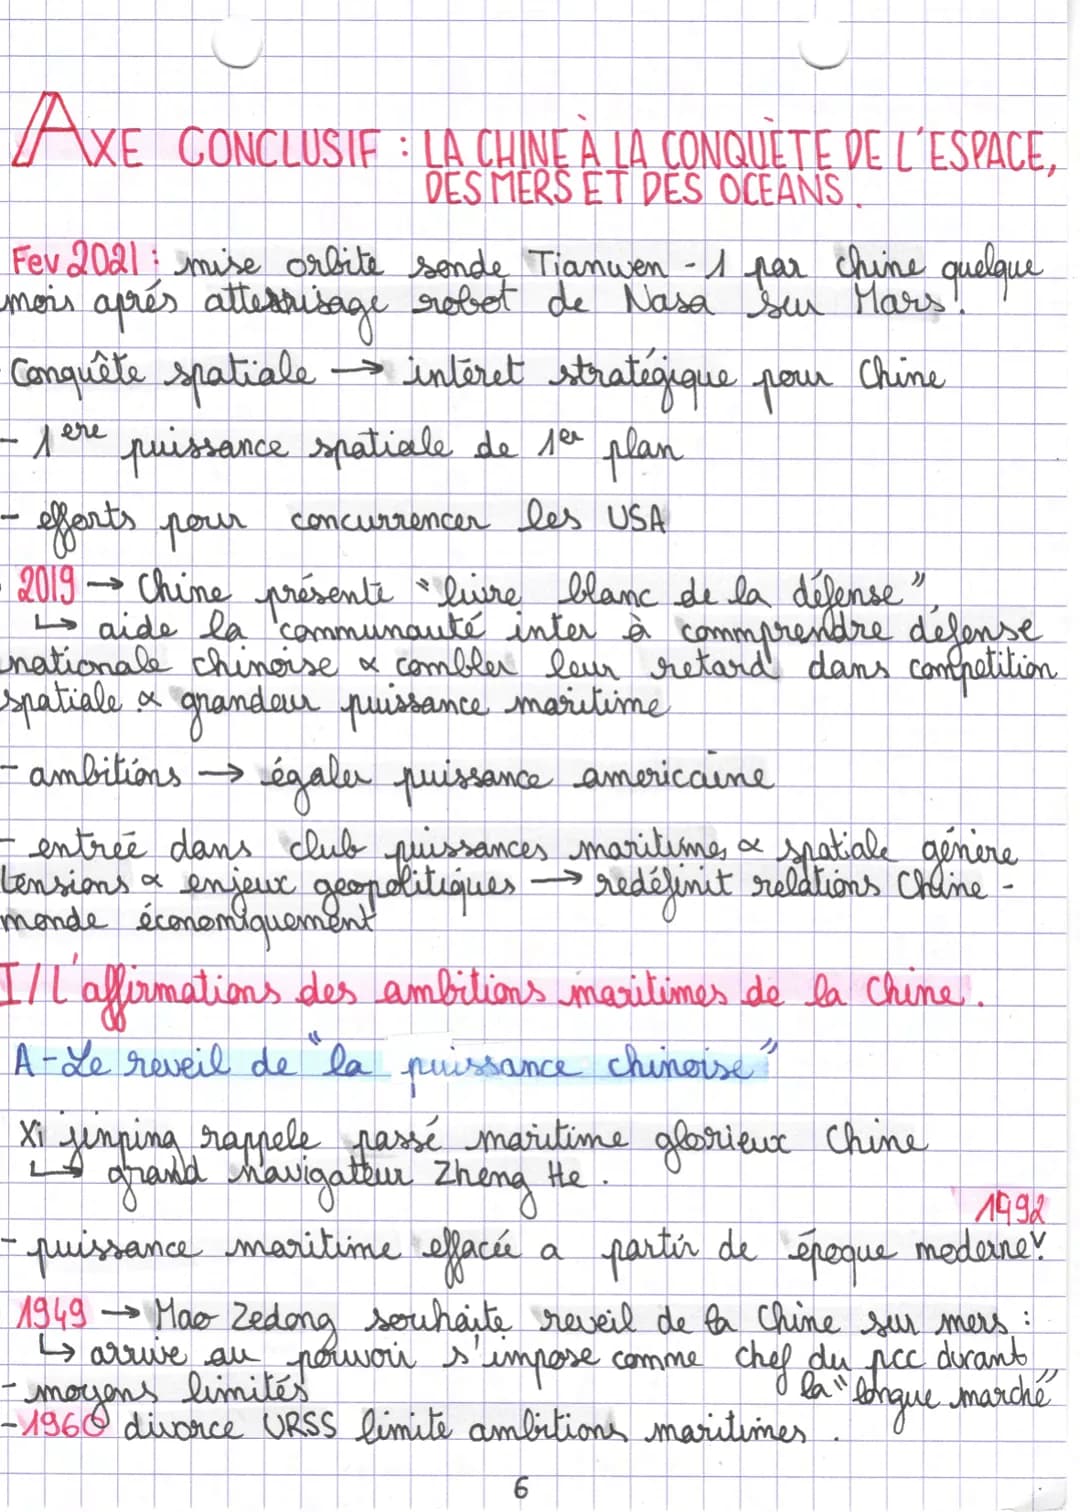 AXE CONCLUSIF : LA CHINE À LA CONQUÈTE DE L'ESPACE,
DES MERS ET DES OCEANS.
Fev 2021 : mise orbite sonde Tianwen - 1 par Chine quelque
mois aprés atterrisage robot de Nasa sur Mars.
Conquête spatiale → intéret stratégique pour Chine
- 1ere puissance spatiale de 1er plan
- efforts pour concurrencer les USA
2019 → Chine présente "livre blanc de la défense",
↳ aide la communauté inter à commprendre défense
nationale chinoise & combler leur retard dans competition
spatiale & grandeur puissance maritime
- ambitions → égaler puissance americaine
- entrée dans club puissances maritime, & spatiale génère
tensions & enjeux geopolitiques → redéfinit relations Chine -
monde économiquement
I/L'affirmations des ambitions maritimes de la Chine.
A-Le reveil de "la puissance chinoise"
Xi jinping rappele passé maritime glorieux Chine
↳ grand navigatteur Zheng He.
1492
- puissance maritime effacée a partir de époque moderne.
1949 → Mao Zedong souhaite reveil de la Chine sur mers :
↳ arrive au pouvoir s'impose comme chef du pcc durant
la "longue marché"
- moyens limités
- 1960 divorce URSS limite ambitions maritimes.
6